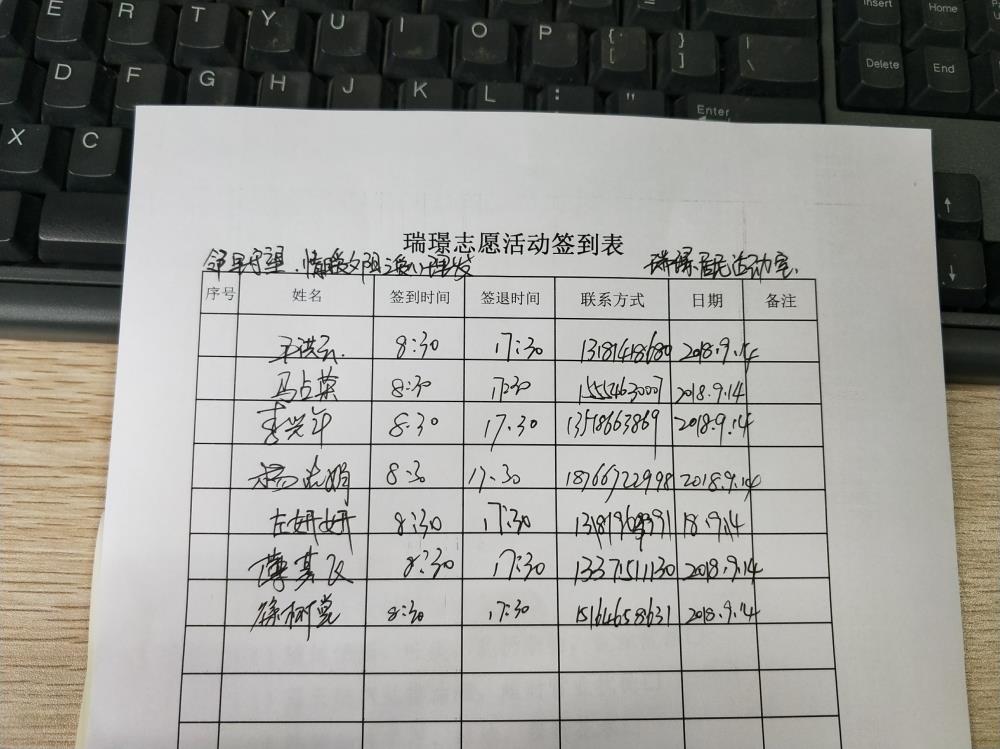 E R T Y U I O P { [ } ] | \ Insert Home
D F G H J K L : " Enter Delete End
X C
瑞璟志愿活动签到表
邻里守望.情暖夕阳之爱心理发 瑞璟居民活动室.
序号 姓名 签到时间 签退时间 联系方式 日期 备注
王洪云. 8:30 17:30 13181418680 2018.9.14
马占荣 8:30 17:30 15552463007 2018.9.14
李兴年 8:30 17.30 13518663869 2018.9.14
杨志娟 8:30 17:30 18766722998 2018.9.14
左妍妍 8:30 17:30 18.9.14
8:30 17:30 13371511130 2018.9.14
徐树党 8:30 17:30 15164658631 2018.9.14